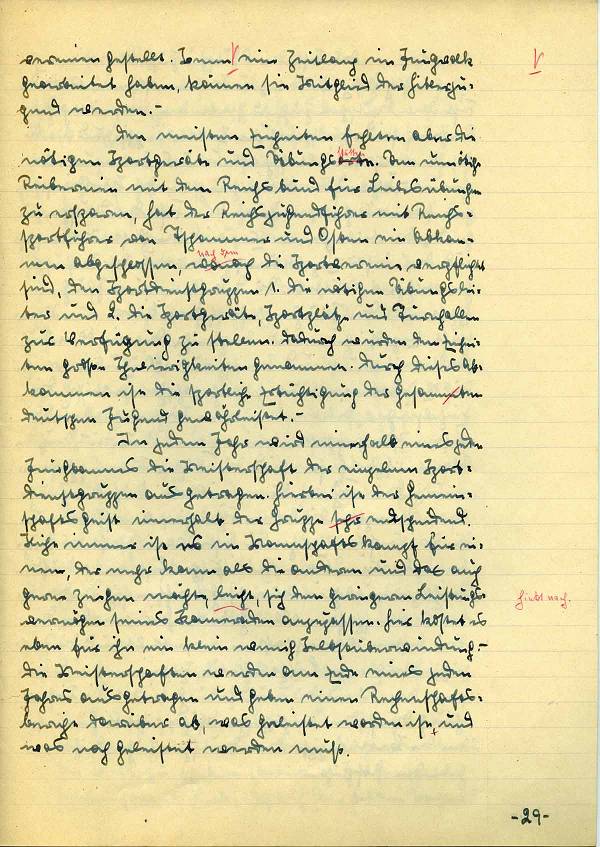 vereinen gestellt. Wenn sie eine Zeitlang im Jungvolk
gearbeitet haben, können sie Mitglied der Hitlerju-
gend werden.-
Den meisten Einheiten fehlten aber die
nötigen Sportgeräte und Übungs
Reibereien mit dem Reichsbund für Leibesübungen
zu ersparen, hat der Reichsjugendführer mit Reichs-
sportführer von Tschammer und Osten ein Abkom-
nach dem
men abgeschlossen, wonach die Sportvereine verpflichtet
sind, den Sportdienstgruppen 1. die nötigen Übungslei-
ter und 2. die Sportgeräte, Sportplätze und Turnhallen
zur Verfügung zu stellen. Dadurch wurden den Einhei-
ten große Schwierigkeiten genommen. Durch dieses Ab-
kommen ist die sportliche Ertüchtigung der gesammten
deutschen Jugend gewährleistet.-
In jedem Jahr wird innerhalb eines jeden
Jungbannes die Meisterschaft der einzelnen Sport-
dienstgruppen ausgetragen. Hierbei ist der Gemein-
schaftsgeist innerhalb der Gruppe sehr entscheidend.
Wie immer ist es im Mannschaftskampf für ei-
nen, der mehr kann als die anderen und das auch
gerne zeigen möchte, leicht, sich dem geringeren Leistungs-
vermögen seines Kameraden anzupassen. Hier kostet es
eben für ihn ein klein wenig Selbstüberwindung.-
Die Meisterschaften werden am Ende eines jeden
Jahres ausgetragen und geben einen Rechenschafts-
bericht darüber ab, was geleistet worden ist, und
was noch geleistet werden muß.
-29-